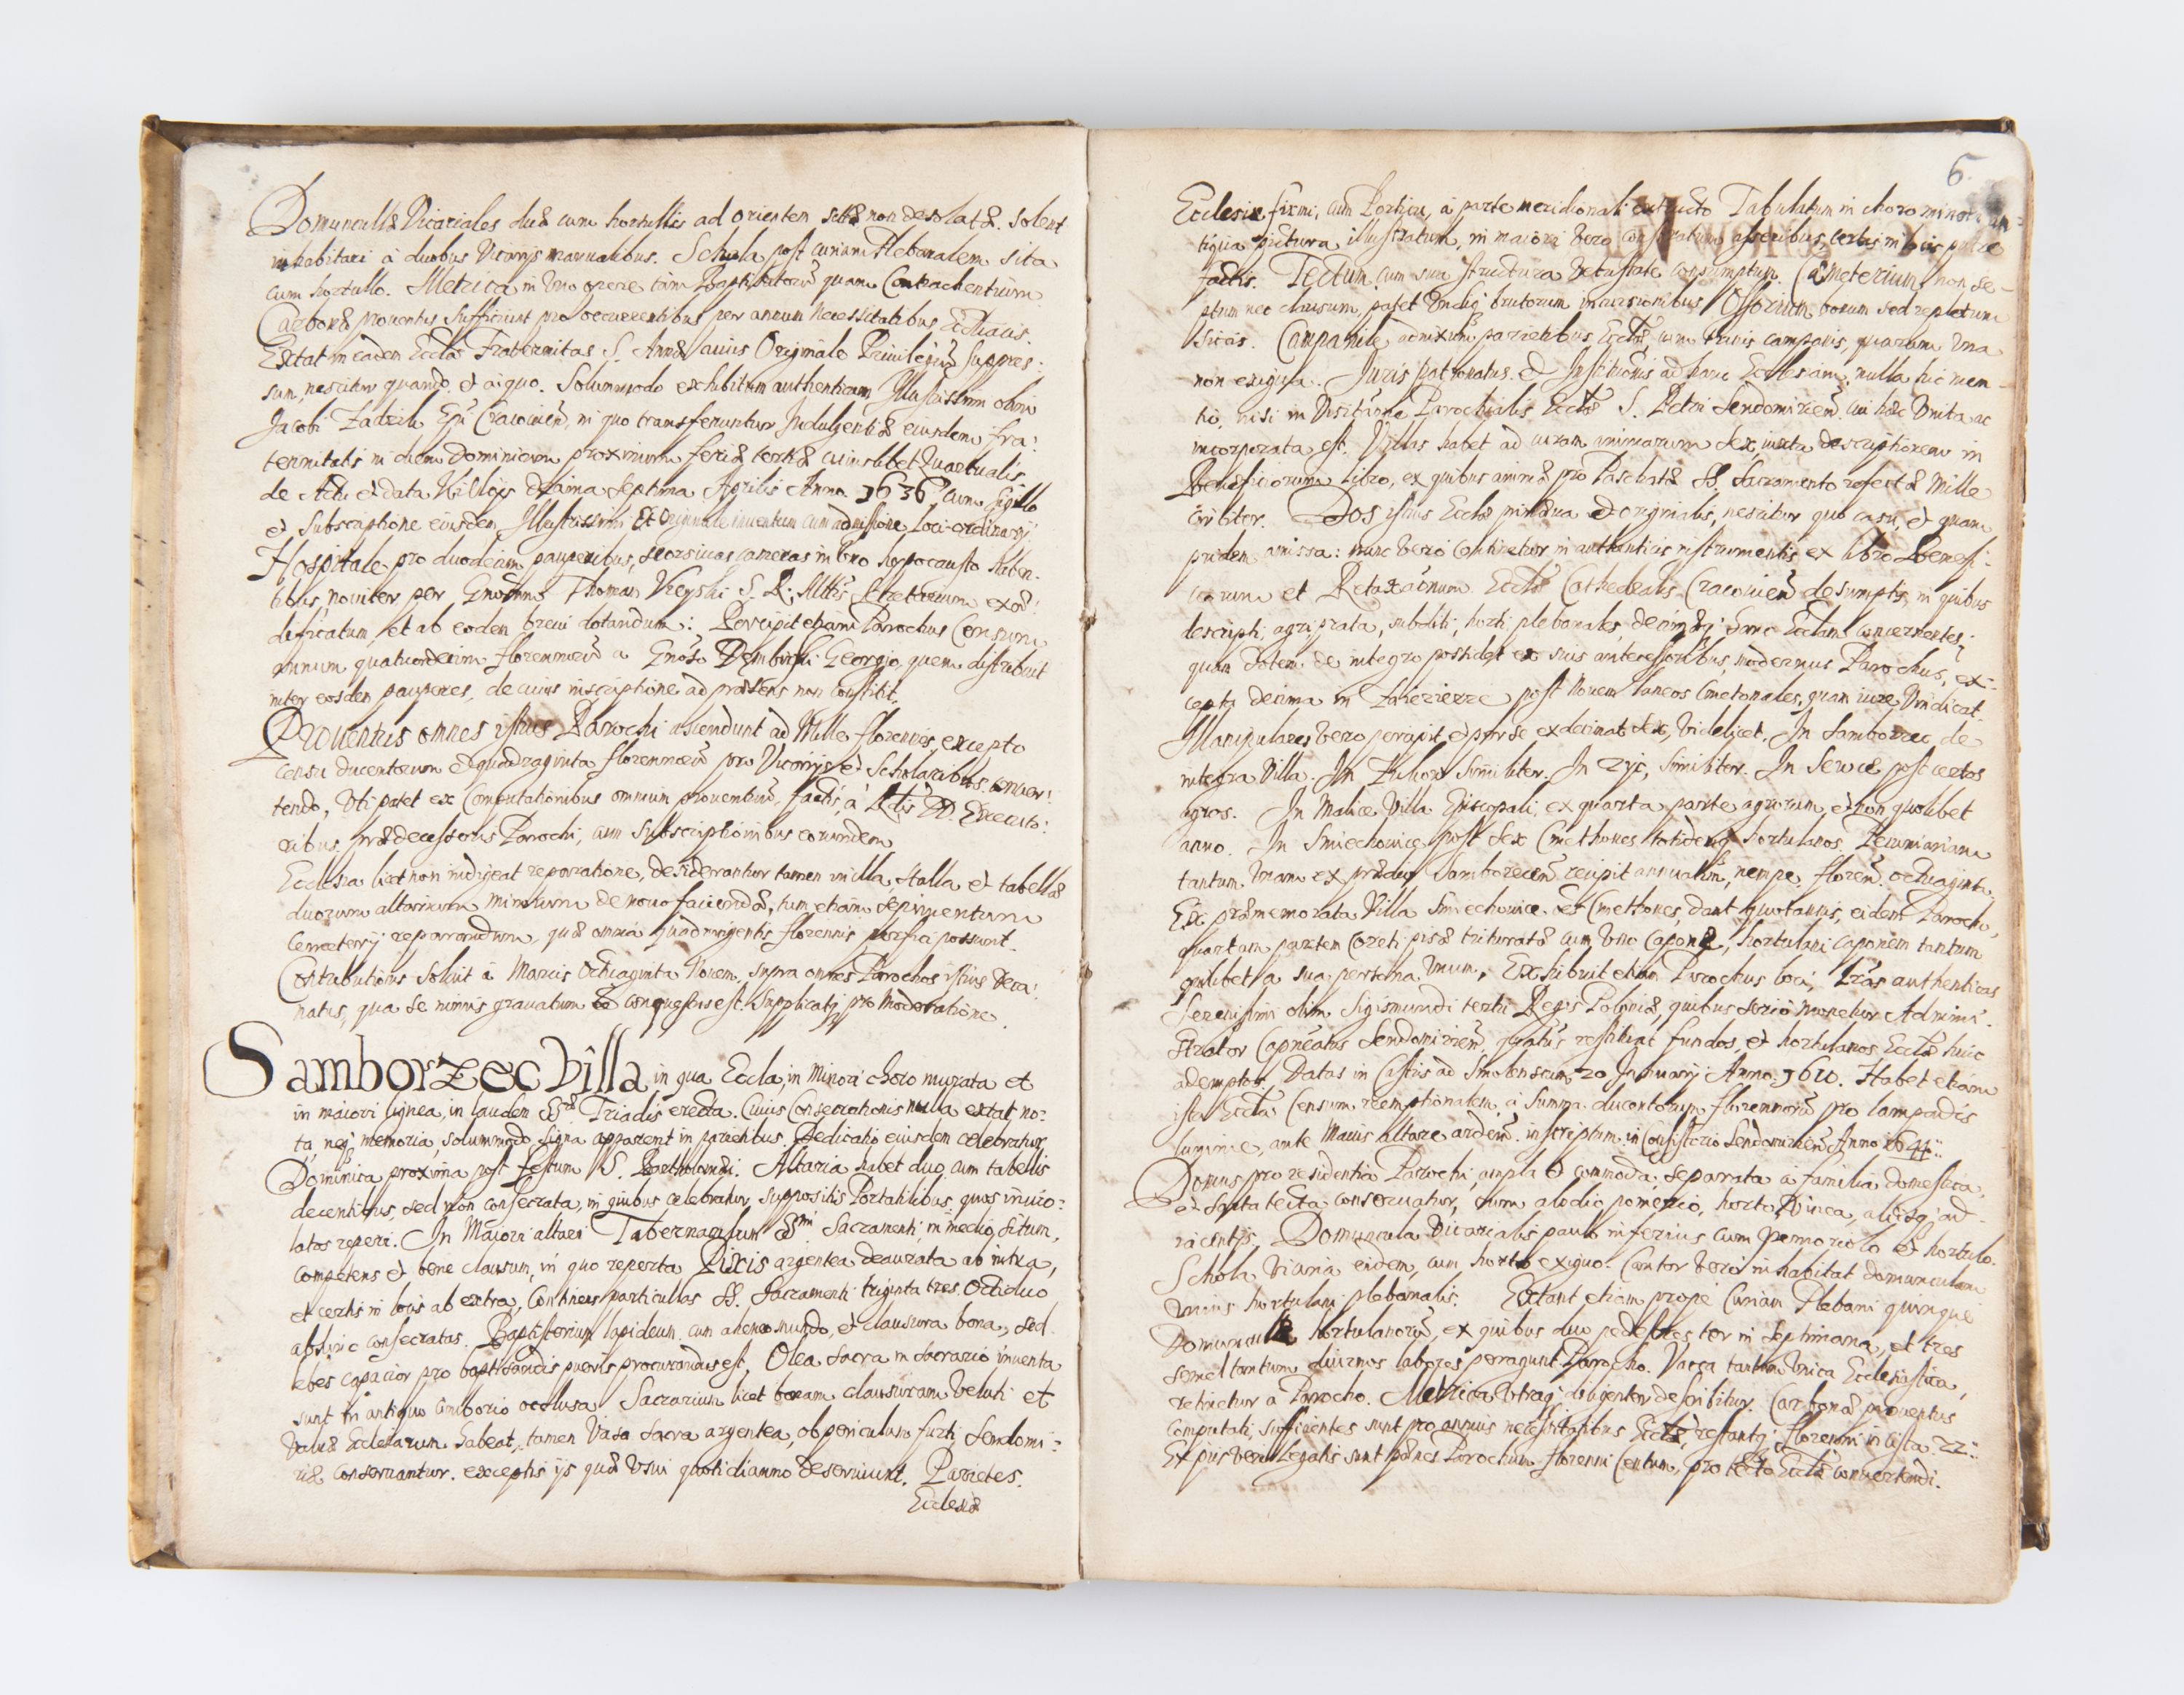 Domunculæ Vicariales duæ cum hortulis ad orientem sitæ non desolatæ. Solent
inhabitari à duobus Vicarijs manualibus. Schola post curiam Plebanalem sita
cum hortullo. Metrica in Uno opere tàm Baptizatorũ quam Contrahentium
Carbonæ prouentus Sufficiunt pro occurrentibus per annum Necessitatibus Ecclíacis.
Extat in eadem Ecclã Fraternitas S. Annæ cuius Originale Priuilegiũ Suppres:
sum, nescitur quando, et a quo. Solummodo exhibitum authenticum Illustrissimi olim
Jacobi Zadzik Epĩ Cracouieñ, in quo transferuntur Indulgentiæ eiusdem fra:
ternitatis in diem Dominicum proximum feriæ tertiæ cuiuslibet Quartualis
de Actu et data Kielcijs decima Septima Aprilis Anno. 1636. cum Sigillo
et Subscriptione eiusdem Illustrissimi Et Originale inuentum cum admissione Loci-ordinarij
Hospitale pro duodecim pauperibus, seorsiuas cameras in Uno hypocausto haben:
tibus, nouiter per Gnosum Thomam S. R. Mttis Secretarium exæ:
dificatum, et ab eodem breui dotandum: Percipit etiam Parochus Censum
annuum quatuordecim florenorũ a Gnoso Dembicki Georgio, quem distribuit
inter eosdem pauperes, de cuius inscriptione ad præsens non constitit.
Prouentus omnes istius Parochi ascendunt ad Mille florenos, excepto
censu ducentorum et quadraginta florenorũ pro Vicarijs et Scholaribus, conuer:
tendo, Uti patet ex Computationibus omnium prouentuũ, factis, à DD. Executo:
ribus. prædecessoris Parochi, cum Subscriptionibus eorundem
Ecclesia licet non indigeat reparatione, desiderantur tamen in illa, Stalla et tabellæ
duorum altarium minorum de nouo faciendæ, tum etiam Sepimentum
Cemeterij reparandum, quæ omnia quadringentis florenis perfici possunt.
Contributionis Soluit à Marcis Octuaginta Nouem, supra omnes Parochos istius Deca:
natus, qua se nimis grauatum conquestus est. Supplicatq pro moderatione.
Samborzec Villa in qua Eccla, in Minori choro murata et
in maiori lignea, in laudem SSæ Triadis erecta. Cuius Consecrationis nulla extat no:
ta, neq memoria, solummodo signa apparent in parietibus. Dedicatio eiusdem celebratur
Dominica proxima post festum S. Bartholomæi. Altaria habet duo, cum tabellis
decentibus, sed non consecrata, in quibus celebratur, suppositis Portatilibus, quos inuio:
latos reperi. In Maiori altari Tabernaculum SSmi Sacramenti, in medio situm,
competens et bene clausum, in quo reperta Pixis argentea deaurata ab intra,
et certis in locis ab extra, Continens particullas SS. Sacramenti triginta tres. Octiduo
abhinc consecratas. Baptisterium lapideum cum aheneo mundo, et clausura bona, sed
lebes capacior pro baptisandis pueris procurandus est, Olea Sacra in Sacrario inuenta
sunt in antiquo Cimborio occlusa Sacrarium licet bonam clausuram Veluti et
Valuæ Ecclesiarum habeat, tamen Vasa sacra argentea, ob periculum furti Sendomi:
riæ conseruantur. exceptis ijs quæ Usui quotidianno deseruiunt. Parietes.
Ecclesiæ
6
Ecclesiæ firmi, cum Porticu, a parte meridionali extructo Tabulatum in choro minori an:
tiqua pictura illustratum, in maiori Vero asseribus, certis in locis
factis. Tectum cum sua structura Vetustate consumptum. Cæmeterium non se-
ptum nec clausum, patet Undiq brutorum incursionibus Ossorium bonum sed repletum
Siccis. Campanile admixtum parietibus Ecclæ, cum trinis campanis, quarum Una
non exigua. Juris patronatus et Institutionis ad hanc Ecclesiam, nulla hic men-
tio, nisi in Visitatione Parochialis Ecclæ S. Petri Sendomirieñ. cui hæc Unita ac
incorporata est. Villas habet ad curam animarum Sex, iuxta descriptionem in
Beneficiorum Libro, ex quibus animæ pro Paschate SS. Sacramento refectæ Mille
circiter. Dos istius Ecclæ primæua et originalis, nescitur quo casu, et quam
pridem amissa: nunc Vero Continetur in authenticis instrumentis ex libro Benefi:
ciorum et Retaxationum Ecclæ Cathedralis Cracouieñ desumptis, in quibus
descripti, agri, prata, subditi, horti plebanales, decimæq hanc Ecclam concernentes;
quam dotem de integro possidet ex suis antecessoribus, modernus Parochus, ex:
cepta decima in post Nouem laneos Cmetonales, quam iure Vindicat.
Manipulares Vero percipit, et per se exdecimat Sex, Videlicet. In Samborzec de
integra Villa. In Zuchow Similiter. In Zyć, Similiter. In Sewce post certos
agros. In Malice Villa Episcopali, ex quarta parte agrorum, et non quolibet
anno. In Smiechowice post Sex Cmethones totidemq hortulanos. Pecuniariam
tantum Unam ex prædio Samborecen recipit annuatim, nempe floreñ. octuaginta.
Ex præmemorata Villa Smiechowice. Sex Cmethones, dant quotannis, eidem Parocho,
quartam partem Coreti pisæ trituratæ cum Uno Capone, hortulani caponem tantum
quilibet a sua persona Unum, Exhibuit etiam Parochus loci, Lras authenticas
Serenissimi olim Sigismundi tertii Regis Poloniæ, quibus Serio monetur Admini:
strator Capneatus Sendomirieñ. quatus restituat fundos, et hortulanos Ecclæ huic
ademptos, Datas in Castris ad Smolenscum 20 Januarij Anno. 1610. Habet etiam
ista Eccla Censum reemptionalem, à Summa ducentorum florenorũ pro lampadis
lumine, ante Maius altare ardeñ. inscriptum in Consistorio Sendomirieñ Anno 1644::
Domus pro residentia Parochi ampla et commoda, separata à familia domestica,
et Sarta tecta conseruatur, cum alodio, pomerio, horto, Vinea, alijsq ad-
iacentijs. Domuncula Vicarialis paulo inferius cum pomeriolo et hortulo.
Schola Vicina eidem, cum horto exiguo. Cantor Vero inhabitat domunculam
Unius hortulani plebanalis. Extant etiam prope Curiam Plebani quinque
Domunculæ hortulanorũ, ex quibus duo pedestres ter in Septimana, et tres
semel tantum diurnos labores peragunt Parocho. Vacca tantum Unica Ecclesiastica,
retinetur a Parocho. Metrica Utraq diligenter describitur. Carbonæ prouentus
computati, sufficientes sunt pro annuis necessitatibus Ecclæ, restantq floreni in cista 22::
Ex pijs Vero Legatis sunt penes Parochum floreni Centum, pro tecto Ecclæ conuertendi.